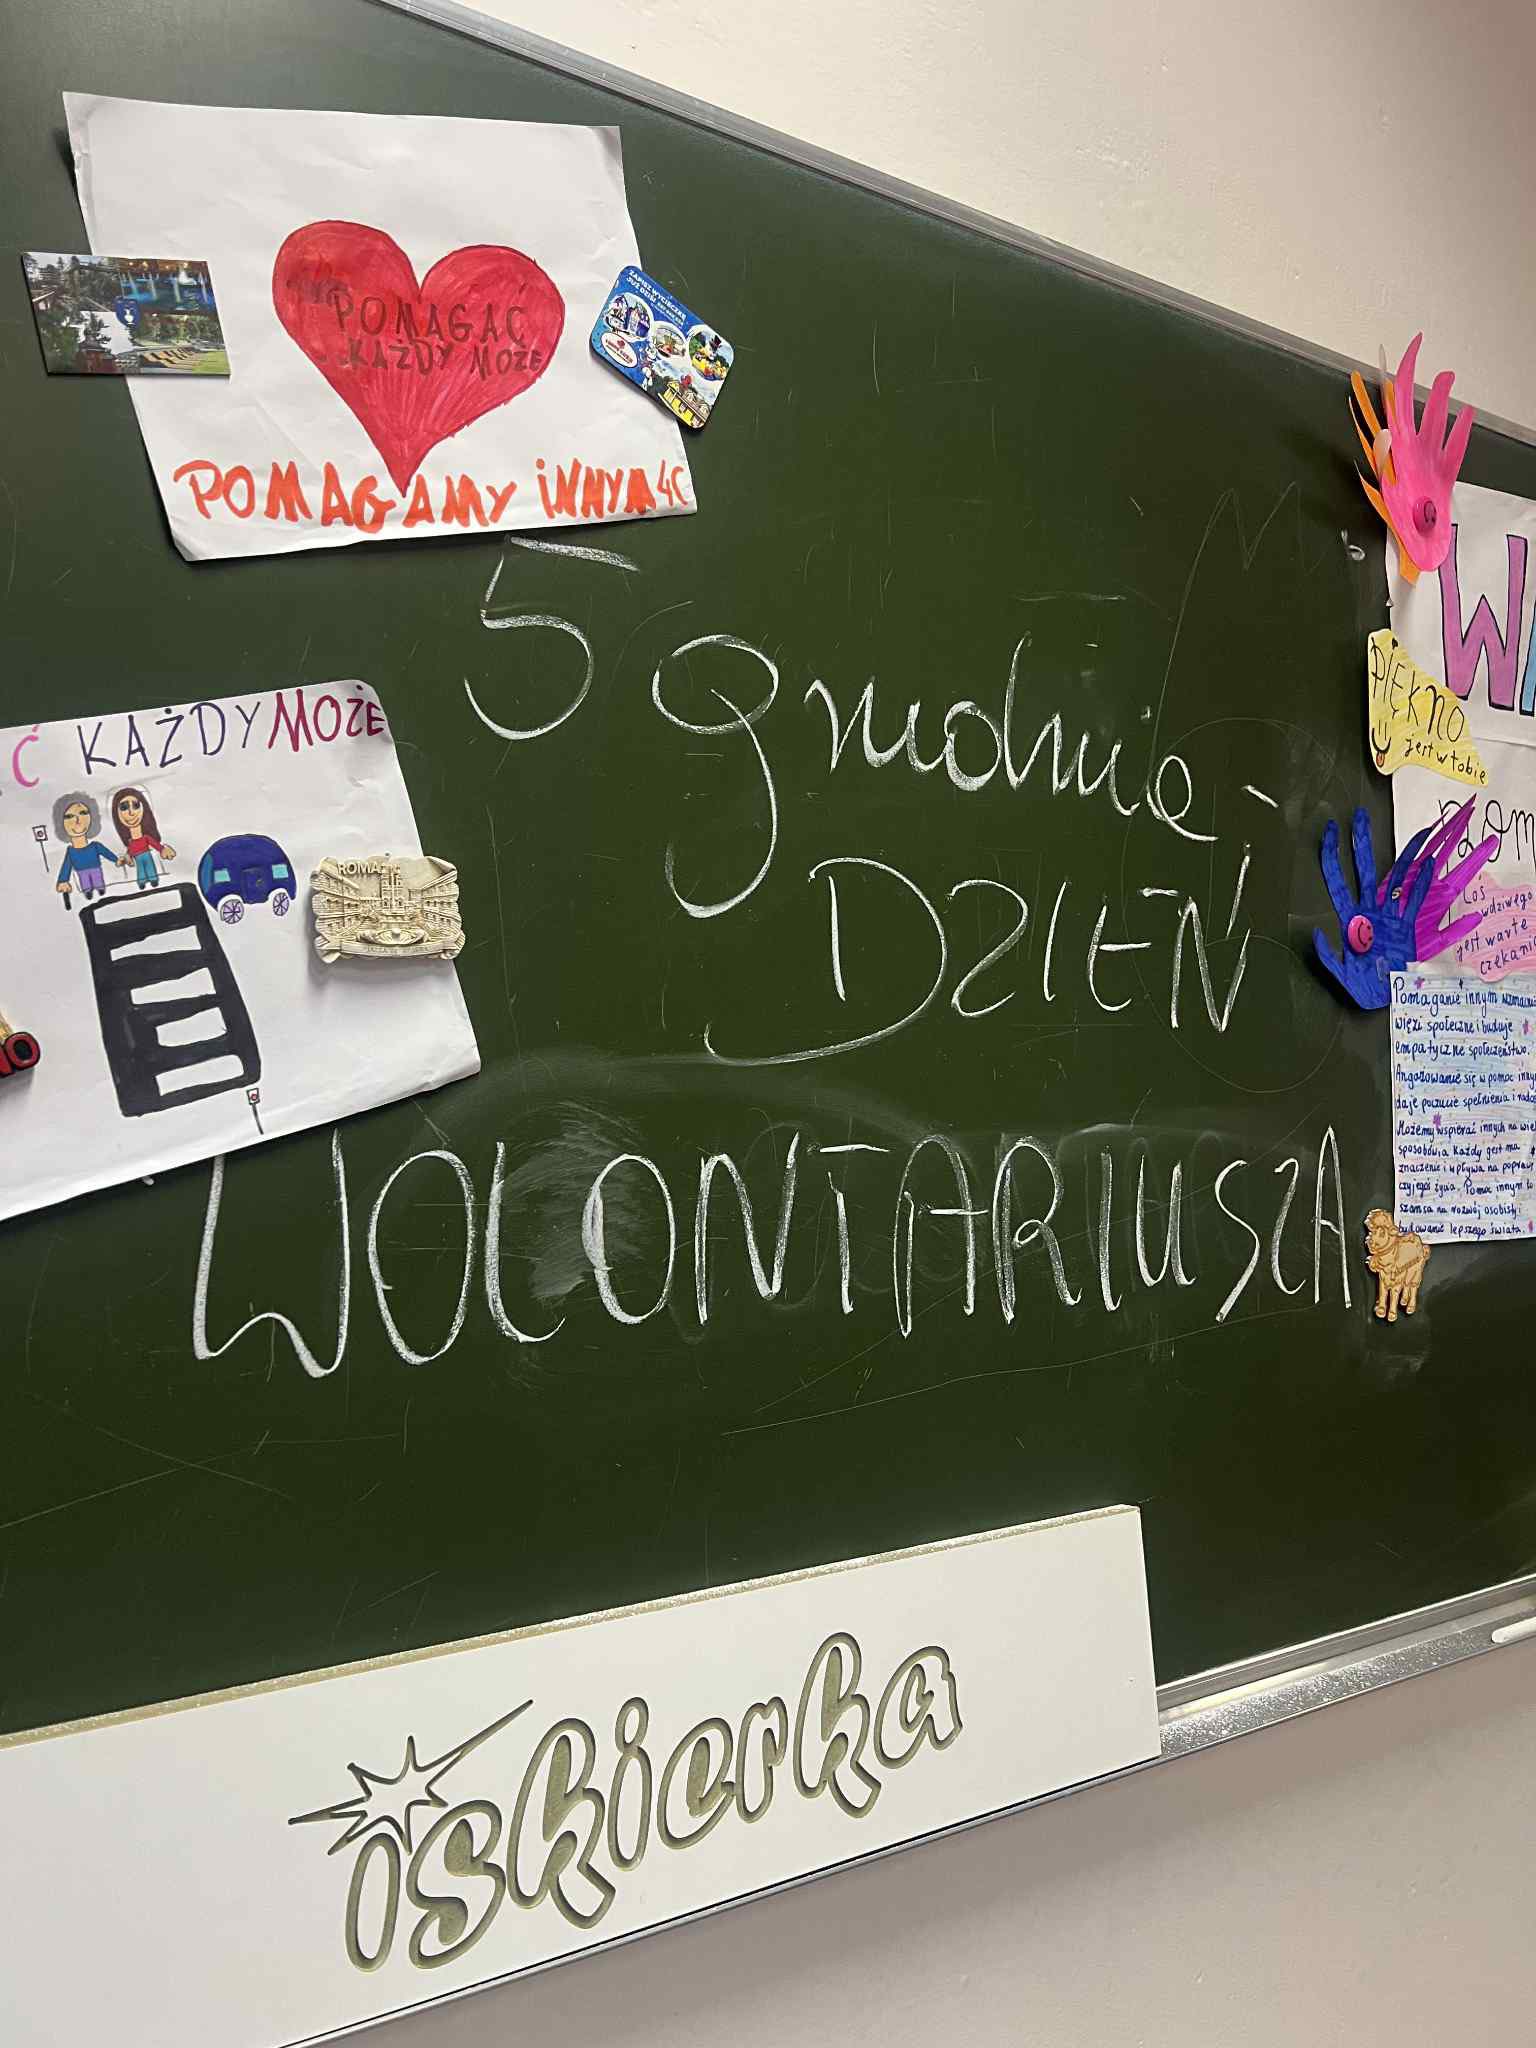 POMAGAĆ
KAŻDY MOŻE
POMAGAMY INNYM 4C
ZAPISZ WYCIECZKĘ
JUŻ DZIŚ!
5 grudnia -
DZIEŃ
WOLONTARIUSZA
Ć KAŻDY MOŻE
NO
PIĘKNO
jest w tobie
Coś
jest warte
Pomaganie innym
więzi społeczne i buduje
empatyczne społeczeństwo.
Angażowanie się w pomoc
daje poczucie spełnienia i
Możemy wspierać innych na
sposobów, a każdy gest ma
znaczenie i wpływa na
czyjegoś życia. Pomoc innym to
szansa na rozwój osobisty i
budowanie lepszego świata.
iskierka